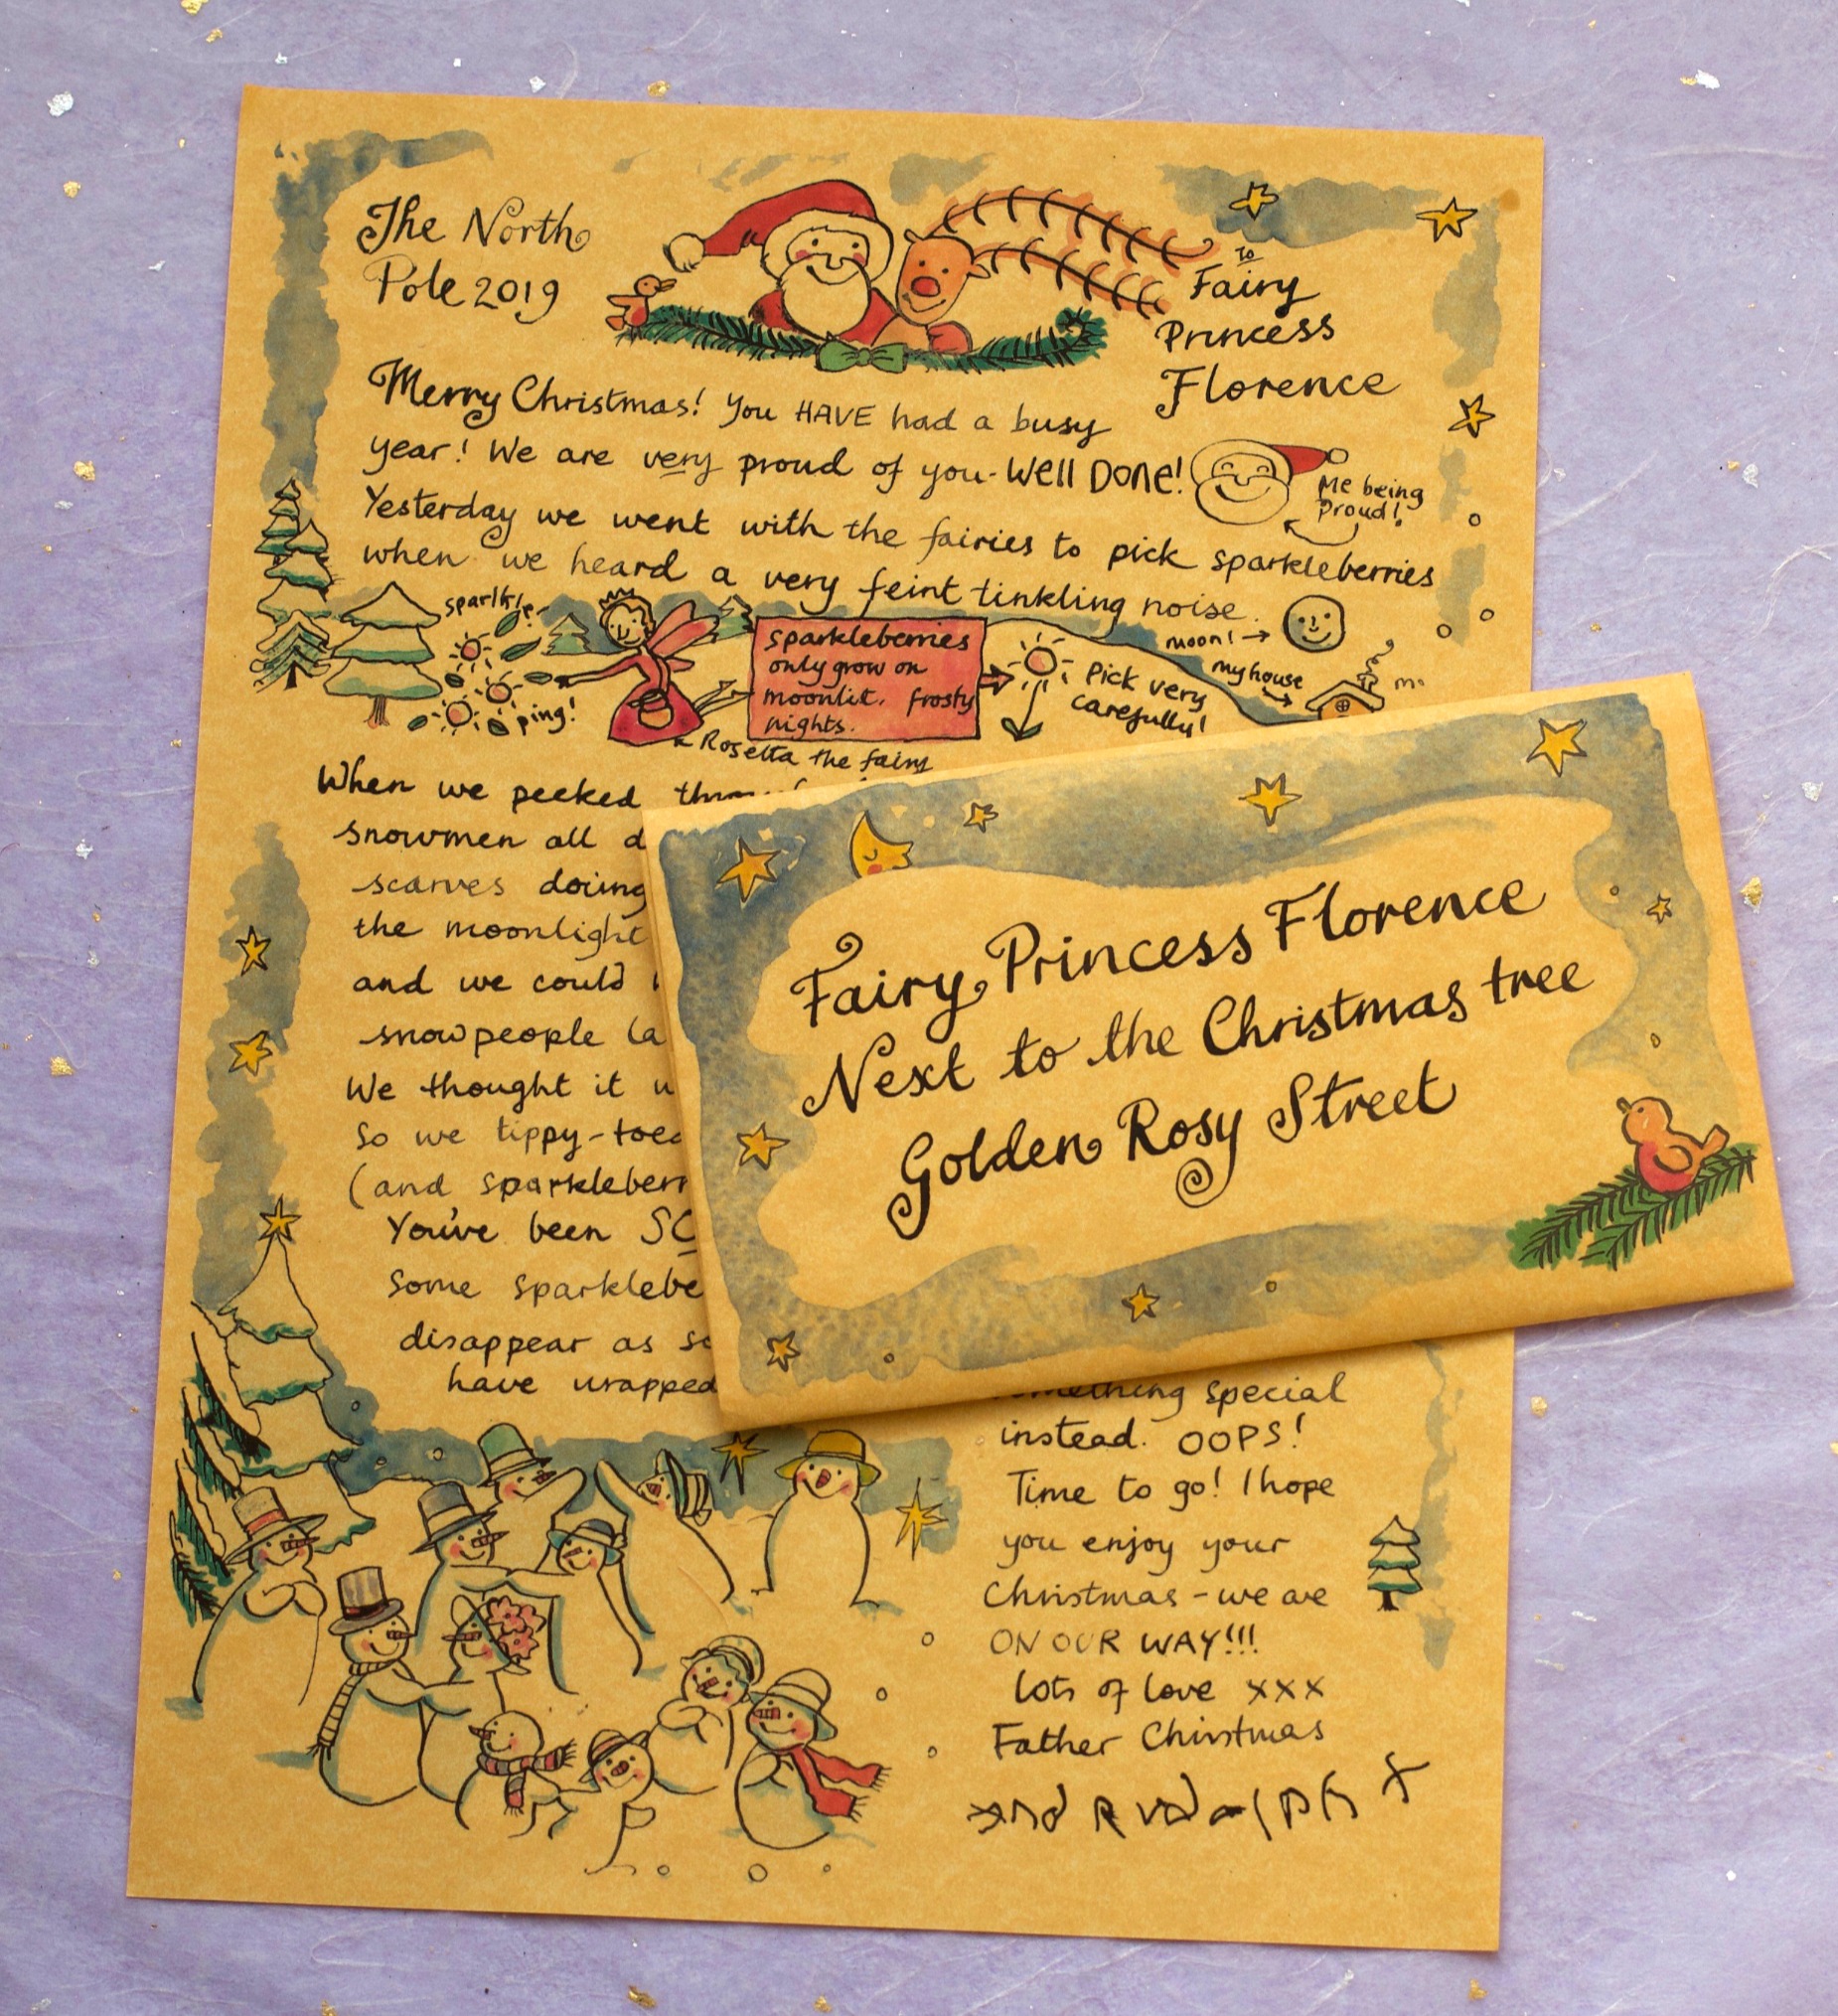 The North
Pole 2019
To
Fairy
Princess
Florence
Merry Christmas! You HAVE had a busy
year! We are very proud of you - Well DONE!
Me being
Proud!
Yesterday we went with the fairies to pick sparkleberries
when we heard a very feint tinkling noise.
sparkle
ping!
Rosetta the fairy
sparkleberries
only grow on
moonlit, frosty
nights.
Pick very
carefully!
moon!
my house
When we peeked
snowmen all
scarves doing
the moonlight
and we could
snowpeople
We thought it
So we
(and
You've been
Some
disappear as
have wrapped
special
instead. OOPS!
Time to go! I hope
you enjoy your
Christmas - we are
ON OUR WAY!!!
lots of love xxx
Father Christmas
and Rudolph x
Fairy Princess Florence
Next to the Christmas tree
Golden Rosy Street